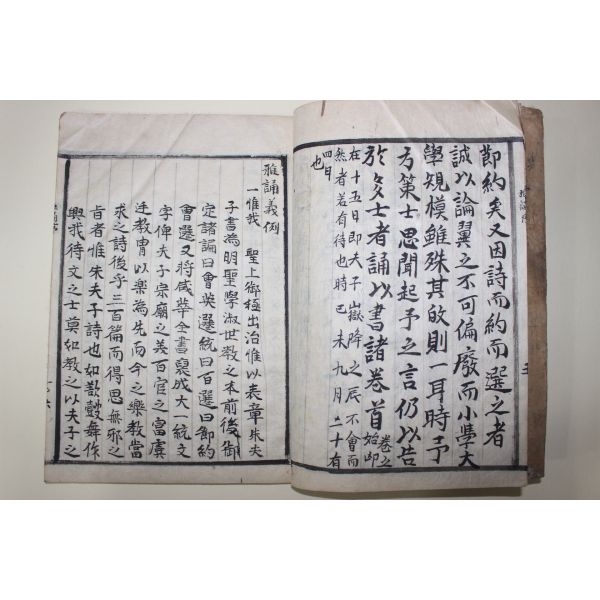 節約矣又因詩而約而選之者
誠以論翼之不可偏廢而小學大
學規模雖殊其敎則一耳時予
方策士思聞起予之言仍以告
於多士者誦以書諸卷首 卷之始印
在十五日即夫子嶽降之辰不會而
然者若有待也時己未九月二十有
四日
也
雅誦義例
一惟我 聖上御極出治惟以表章朱夫
子書爲明聖學淑世教之本前後御
定諸論曰會英選統曰百選曰節約
會選又將咸萃全書裒成大一統文
字俾夫子宗廟之美百官之富虞
廷教冑以樂爲先而今之樂教當
求之詩後乎三百篇而得思無邪之
旨者惟朱夫子詩也如散鼓舞作
興我待文之士莫如教之以夫子之